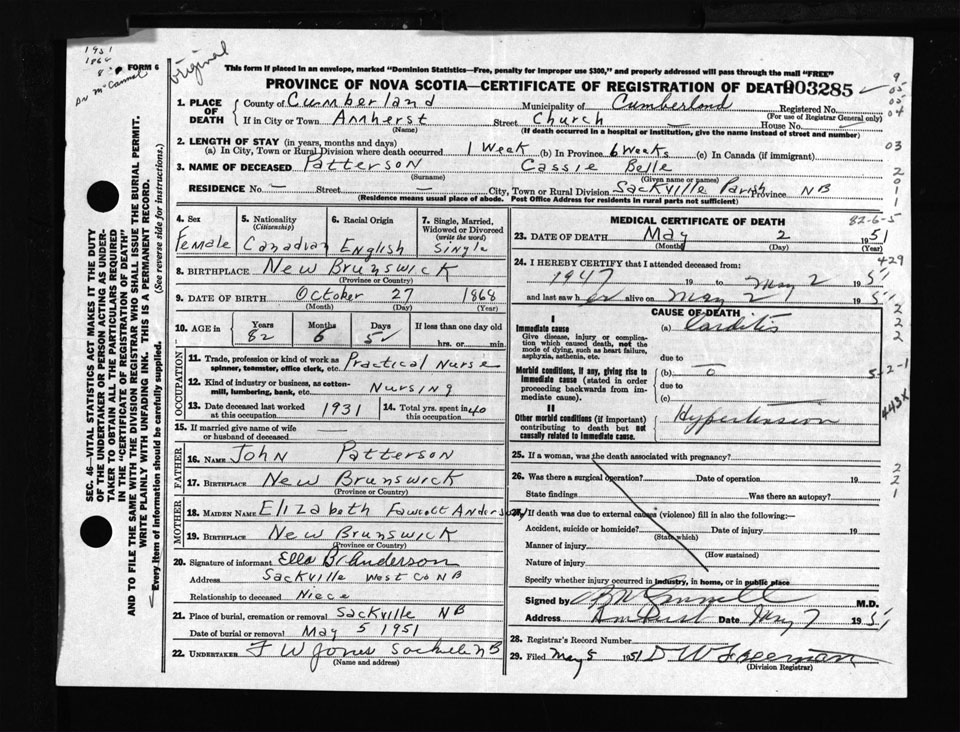 1951
1866
Dr McCannel
original
FORM 6
This form if placed in an envelope, marked "Dominion Statistics—Free, penalty for improper use $300," and properly addressed will pass through the mail "FREE"
PROVINCE OF NOVA SCOTIA—CERTIFICATE OF REGISTRATION OF DEATH 003285
1. PLACE OF DEATH County of Cumberland Municipality of Cumberland Registered No.
If in City or Town Amherst Street Church House No.
(For use of Registrar General only)
(Name) (If death occurred in a hospital or institution, give the name instead of street and number)
2. LENGTH OF STAY (in years, months and days)
(a) In City, Town or Rural Division where death occurred 1 Week (b) In Province 6 Weeks (c) In Canada (if immigrant)
3. NAME OF DECEASED Patterson Cassie Belle
(Surname) (Given name or names)
RESIDENCE No. — Street — City, Town or Rural Division Sackville Parish Province NB
(Residence means usual place of abode. Post Office Address for residents in rural parts not sufficient)
4. Sex 5. Nationality (Citizenship) 6. Racial Origin 7. Single, Married, Widowed or Divorced (write the word)
Female Canadian English Single
8. BIRTHPLACE New Brunswick
(Province or Country)
9. DATE OF BIRTH October 27 1868
(Month) (Day) (Year)
10. AGE in Years Months Days If less than one day old
82 6 5 hrs. or min.
OCCUPATION
11. Trade, profession or kind of work as spinner, teamster, office clerk, etc. Practical Nurse
12. Kind of industry or business, as cotton-mill, lumbering, bank, etc. Nursing
13. Date deceased last worked at this occupation 1931 14. Total yrs. spent in this occupation 40
15. If married give name of wife or husband of deceased —
FATHER
16. NAME John Patterson
17. BIRTHPLACE New Brunswick
(Province or Country)
MOTHER
18. MAIDEN NAME Elizabeth Fawcett Anderson
19. BIRTHPLACE New Brunswick
(Province or Country)
20. Signature of informant Ella B. Anderson
Address Sackville West Co NB
Relationship to deceased Niece
21. Place of burial, cremation or removal Sackville NB
Date of burial or removal May 5 1951
22. UNDERTAKER F W Jones Sackville NB
(Name and address)
MEDICAL CERTIFICATE OF DEATH 82-6-5
23. DATE OF DEATH May 2 1951
(Month) (Day) (Year)
24. I HEREBY CERTIFY that I attended deceased from:
1947 19 to May 2 1951
and last saw her alive on May 2 1951
CAUSE OF DEATH
I
Immediate cause (a) Carditis
Give disease, injury or complication which caused death, not the mode of dying, such as heart failure, asphyxia, asthenia, etc.
due to
Morbid conditions, if any, giving rise to immediate cause (stated in order proceeding backwards from immediate cause).
(b) o
due to
(c)
II
Other morbid conditions (if important) contributing to death but not causally related to immediate cause.
Hypertension
25. If a woman, was the death associated with pregnancy?
26. Was there a surgical operation? Date of operation 19
State findings Was there an autopsy?
27. If death was due to external causes (violence) fill in also the following:—
Accident, suicide or homicide? Date of injury 19
(State which)
Manner of injury
(How sustained)
Nature of injury
Specify whether injury occurred in industry, in home, or in public place
Signed by M.D.
Address Amherst Date May 7 1951
28. Registrar's Record Number
29. Filed May 5 1951 D W Freeman
(Division Registrar)
9
05
05
04
03
2
0
1
1
429
2
2
2
5-2-1
443X
2
2
1
SEC. 46—VITAL STATISTICS ACT MAKES IT THE DUTY
OF THE UNDERTAKER OR PERSON ACTING AS UNDERTAKER TO OBTAIN ALL THE PARTICULARS REQUIRED
IN THE "CERTIFICATE OF REGISTRATION OF DEATH"
AND TO FILE THE SAME WITH THE DIVISION REGISTRAR WHO SHALL ISSUE THE BURIAL PERMIT.
WRITE PLAINLY WITH UNFADING INK. THIS IS A PERMANENT RECORD.
Every item of information should be carefully supplied. (See reverse side for instructions.)